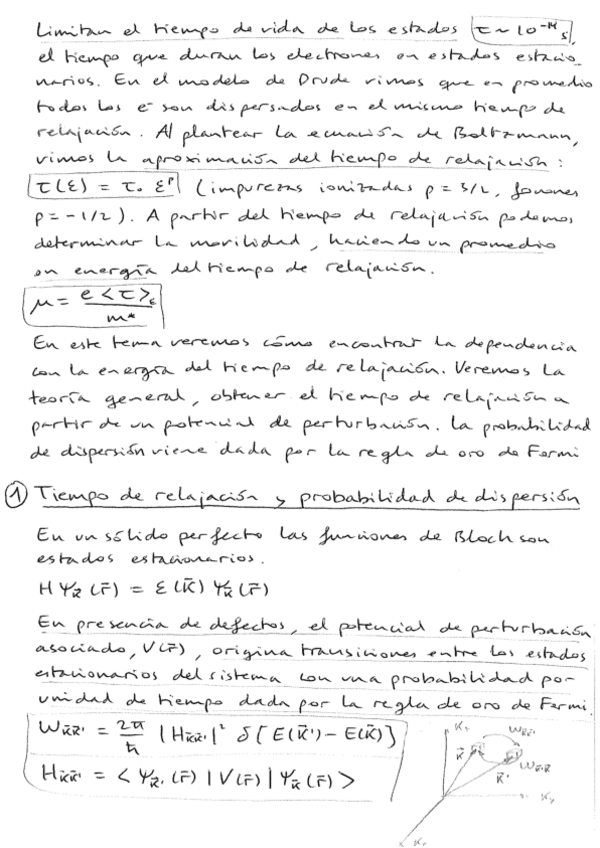 Limitan el tiempo de vida de los estados τ ~ 10⁻¹⁴ s,
el tiempo que duran los electrones en estados estacio_
narios. En el modelo de Drude vimos que en promedio
todos los e⁻ son dispersados en el mismo tiempo de
relajación. Al plantear la ecuación de Boltzmann,
vimos la aproximación del tiempo de relajación:
τ(ε) = τ₀ ε^p (impurezas ionizadas p = 3/2, fonones
p = -1/2). A partir del tiempo de relajación podemos
determinar la movilidad, haciendo un promedio
en energía del tiempo de relajación.
μ = e <τ>_ε / m*
En este tema veremos cómo encontrar la dependencia
con la energía del tiempo de relajación. Veremos la
teoría general, obtener el tiempo de relajación a
partir de un potencial de perturbación. La probabilidad
de dispersión viene dada por la regla de oro de Fermi
① Tiempo de relajación y probabilidad de dispersión
En un sólido perfecto las funciones de Bloch son
estados estacionarios.
H Ψ_k̄ (r̄) = ε(k̄) Ψ_k̄ (r̄)
En presencia de defectos, el potencial de perturbación
asociado, V(r̄), origina transiciones entre los estados
estacionarios del sistema con una probabilidad por
unidad de tiempo dada por la regla de oro de Fermi.
W_k̄k̄' = 2π/ħ |H_k̄k̄'|² δ[E(k̄') - E(k̄)]
H_k̄k̄' = < Ψ_k̄' (r̄) | V(r̄) | Ψ_k̄ (r̄) >
k̄ W_k̄k̄'
k̄' W_k̄'k̄
k_y
k_x